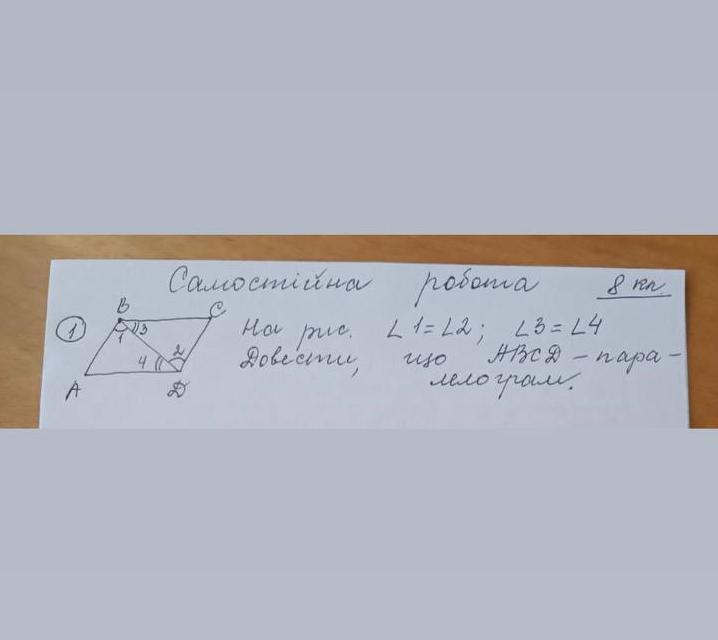 Самостійна робота 8 кл.
1 На рис. ∠1=∠2; ∠3=∠4
Довести, що ABCD – пара–
лелограм.
B C
1 3
4 2
A D